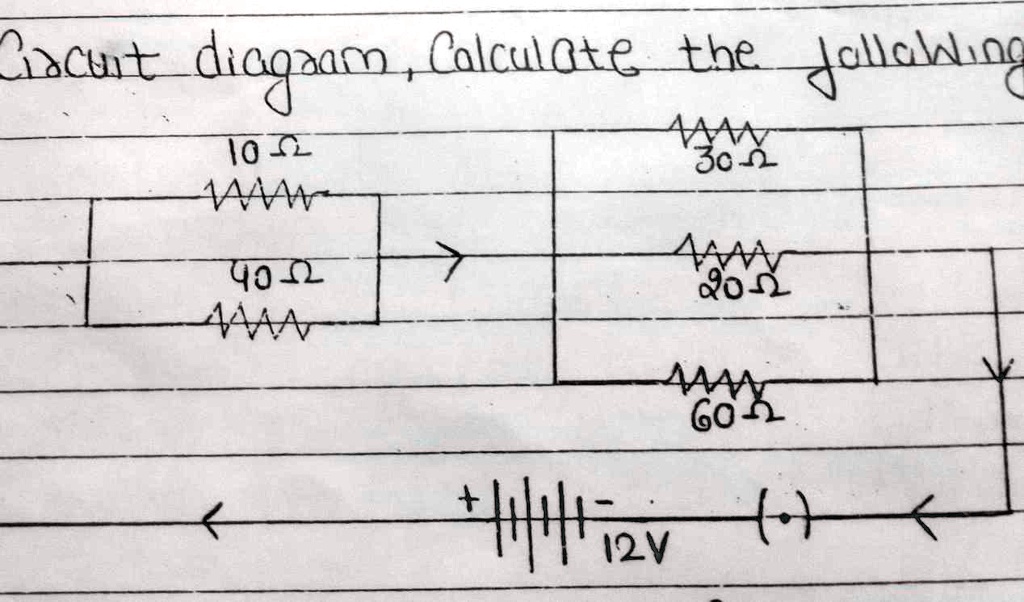 Circuit diagram, Calculate the jallawing
10 Ω
30 Ω
40 Ω
20 Ω
60 Ω
+ -
12V
(•)